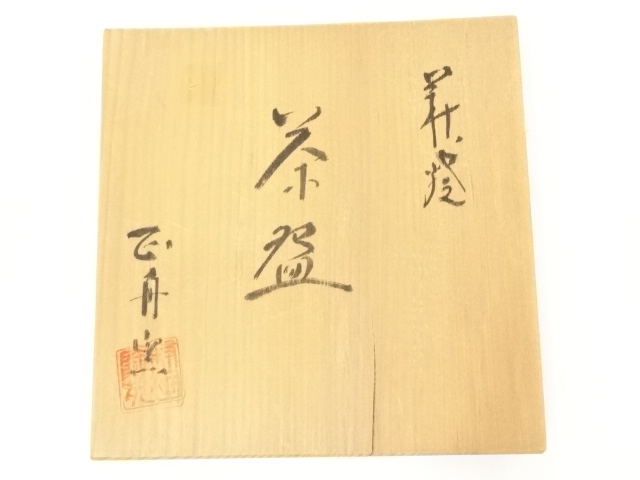 萩焼
茶盌
正舟窯